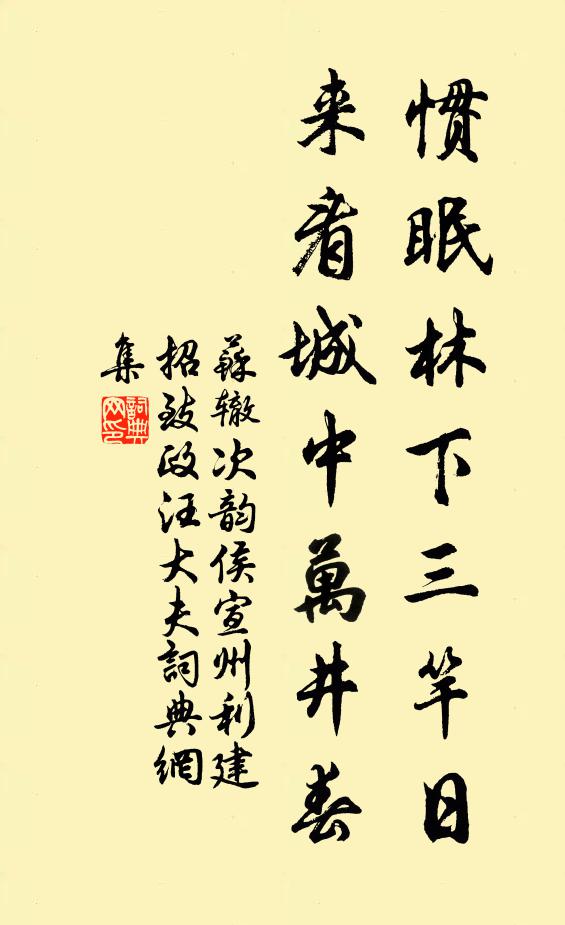 惯眠林下三竿日
来看城中萬井春
蘇辙次韵侯宣州利建
招致政汪大夫詞典網
集
詞典网印